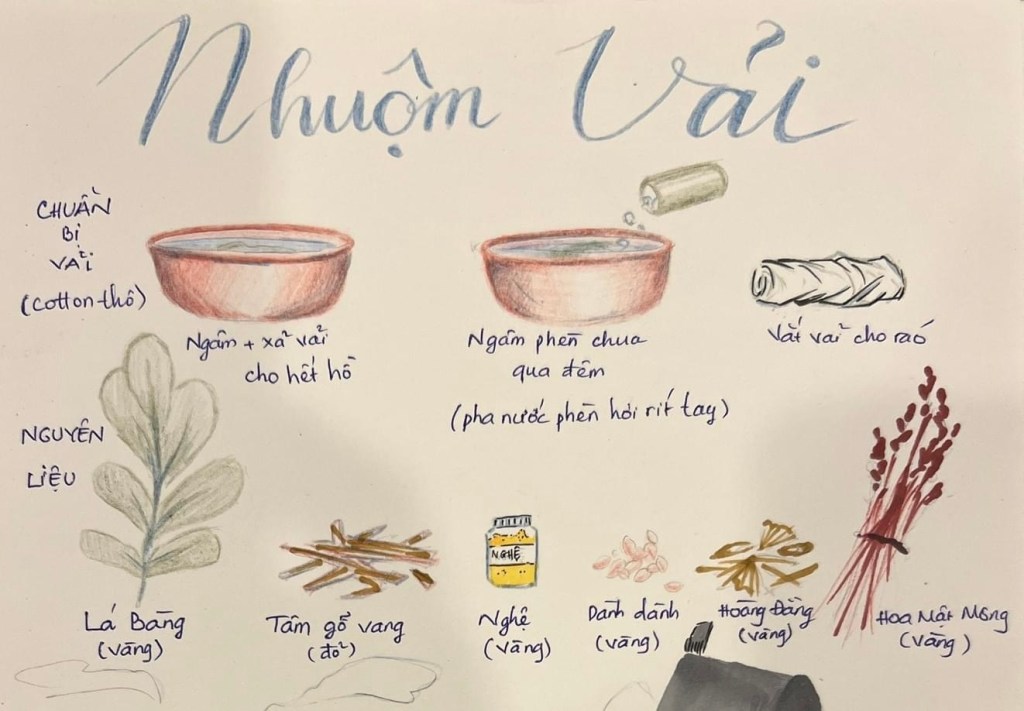 Nhuộm Vải
CHUẨN
BỊ
VẢI
(cotton thô)
Ngâm + xả vải
cho hết hồ
Ngâm phèn chua
qua đêm
(pha nước phèn hơi rít tay)
Vắt vải cho ráo
NGUYÊN
LIỆU
Lá Bàng
(vàng)
Tâm gỗ vang
(đỏ)
NGHỆ
Nghệ
(vàng)
Dành dành
(vàng)
Hoàng Đằng
(vàng)
Hoa Mật Mông
(vàng)